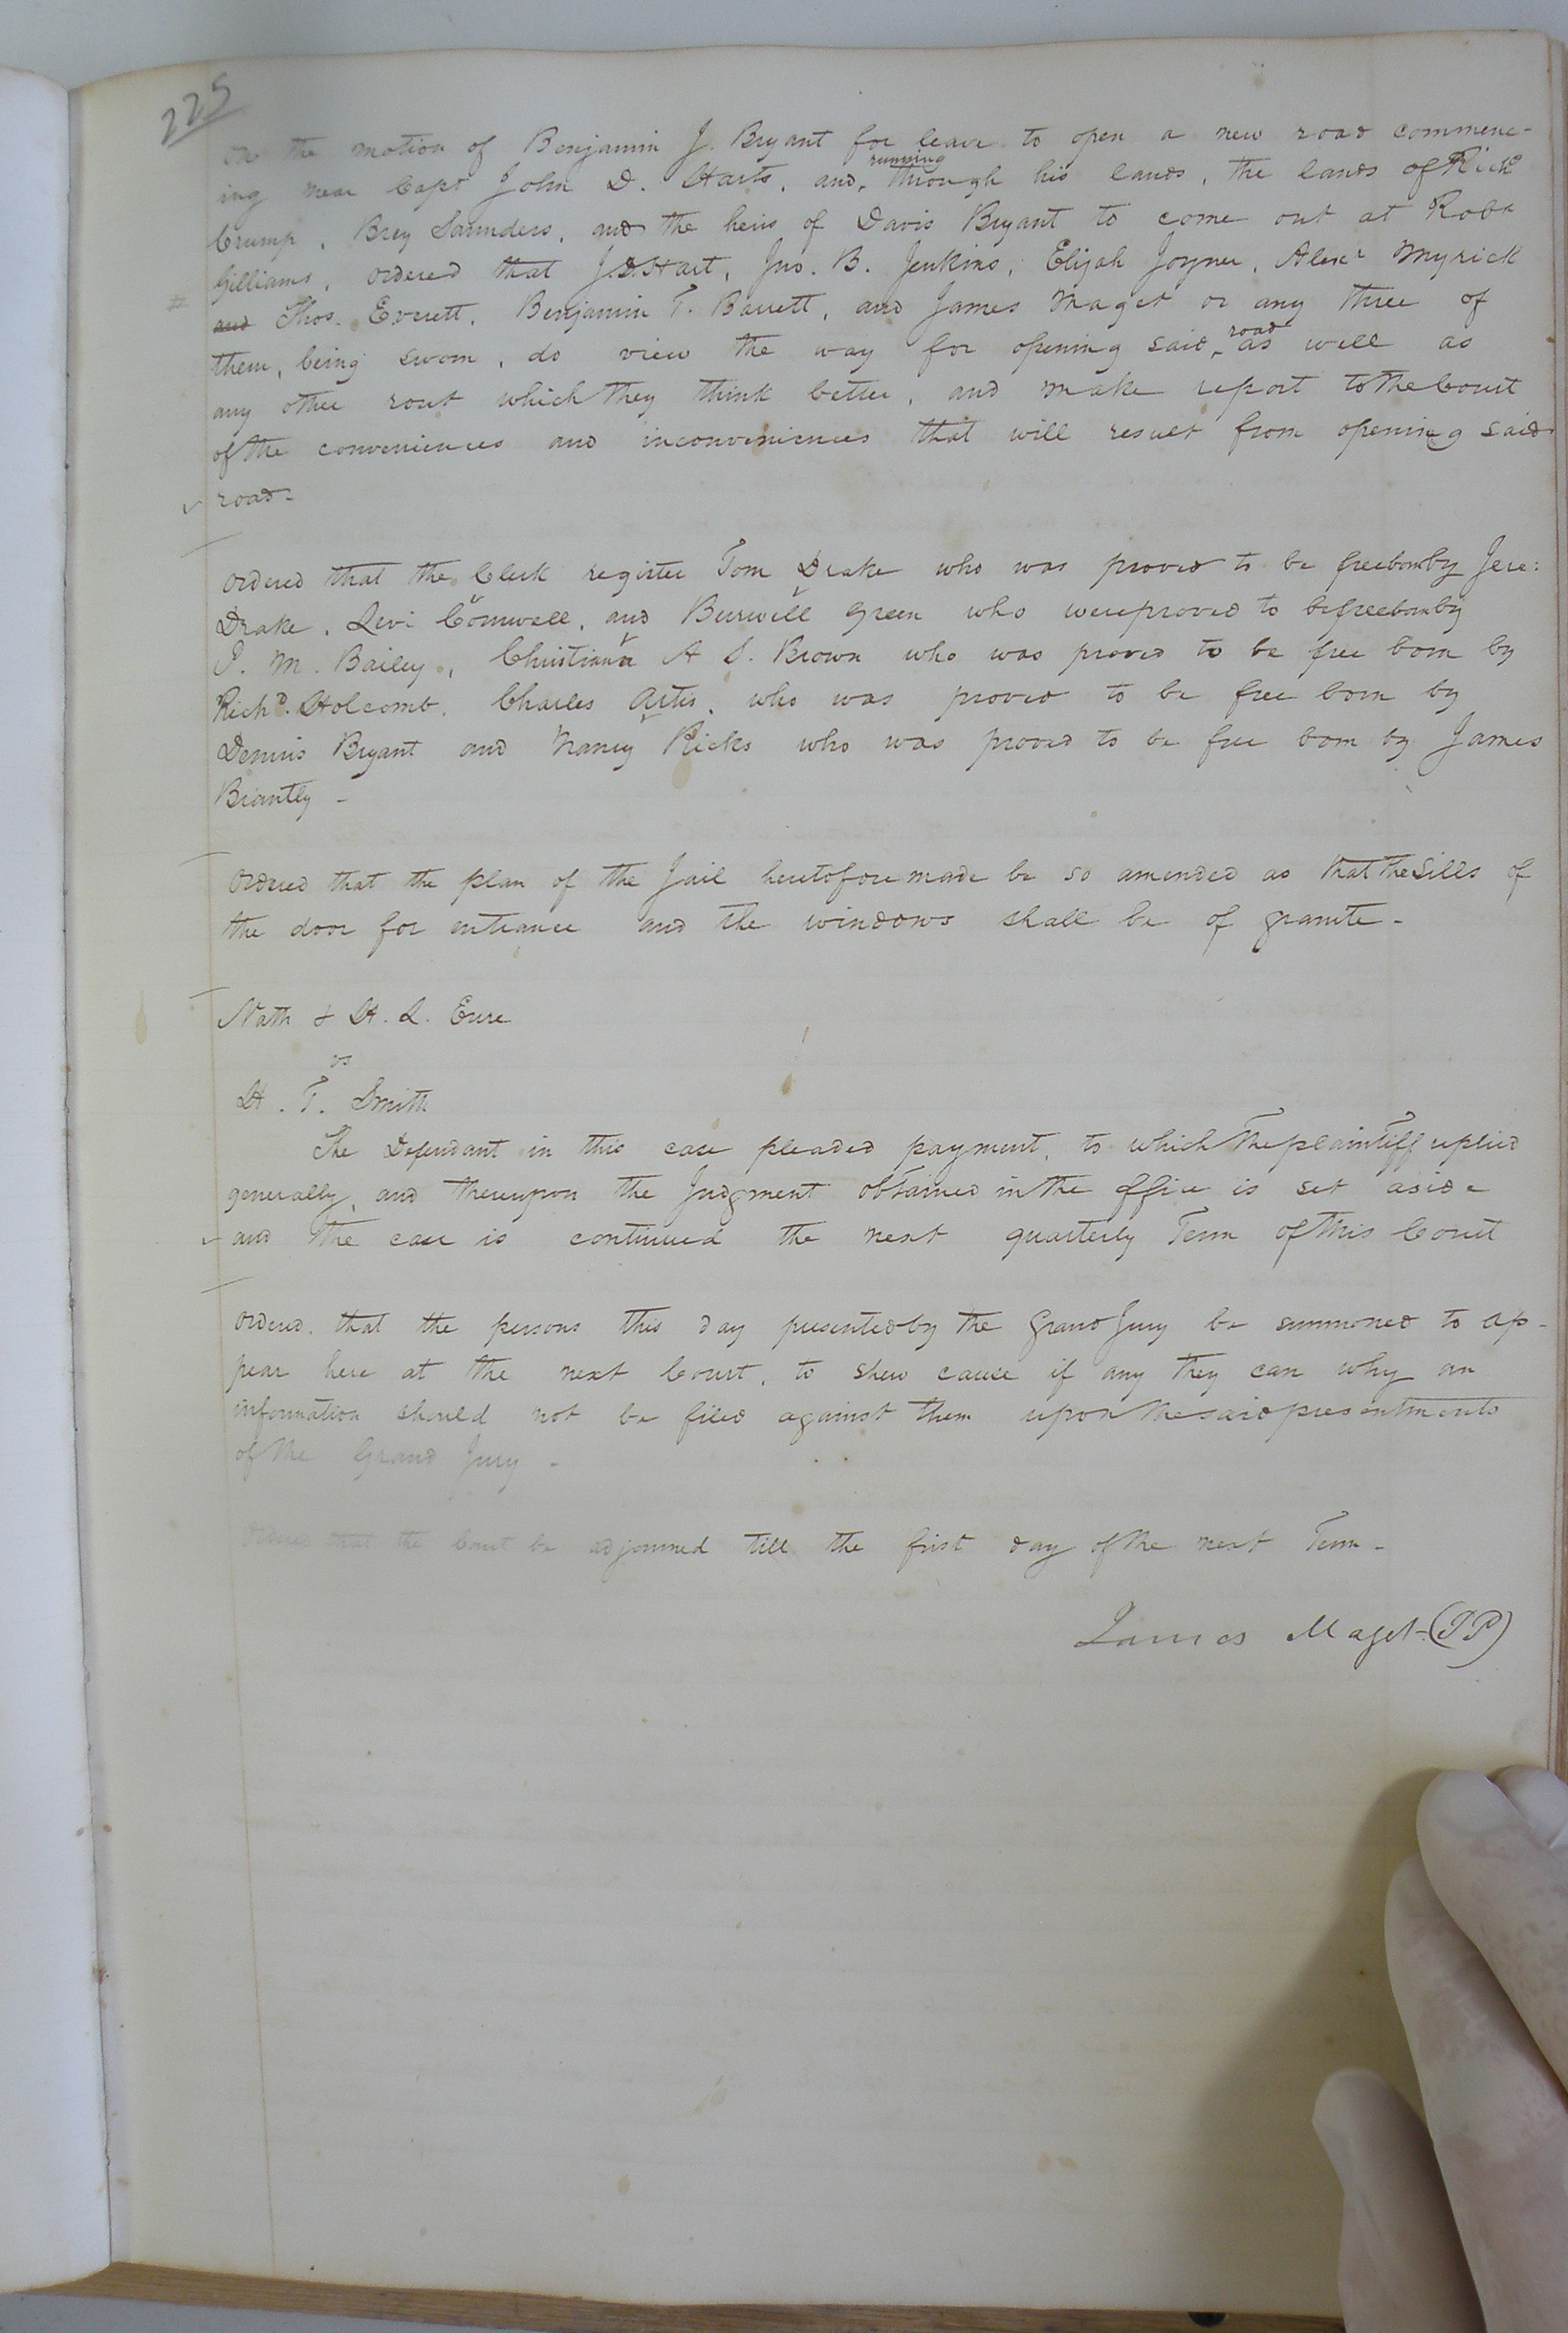 225
On the motion of Benjamin J. Bryant for leave to open a new road commenc-
ing near Capt John D. Harts, and, running through his lands, the lands of Rich
Crump, Brey Saunders, and the heirs of Davis Bryant to come out at Robt
Gilliams, ordered that J D Hart, Jno. B. Jenkins, Elijah Joyner, Alexr Myrick
# and Thos. Everett, Benjamin T. Barrett, and James Maget or any three of
them, being sworn, do view the way for opening said, road as well as
any other rout which they think better, and make report to the Court
of the conveniences and inconveniences that will result from opening said
road-
Ordered that the Clerk register Tom Drake who was proved to be freeborn by Jere:
Drake, Levi Cornwell, and Burwell Green who were proved to be freeborn by
J. M. Bailey, Christiana A S. Brown who was proved to be free born by
Richd. Holcomb, Charles Artis, who was proved to be free born by
Dennis Bryant and Nancy Ricks who was proved to be free born by James
Brantly -
Ordered that the plan of the Jail heretofore made be so amended as that the Sills of
the door for entrance and the windows shall be of granite -
Nath & H. L. Eure
vs
H. T. Smith
The Defendant in this case pleaded payment, to which the plaintiff replied
generally, and thereupon the Judgment obtained in the office is set aside
and the case is continued the next quarterly Term of this Court
Ordered, that the persons this day presented by the Grand Jury be summoned to ap-
pear here at the next Court, to shew cause if any they can why an
information should not be filed against them upon the said presentments
of the Grand Jury -
Ordered that the Court be adjourned till the first day of the next Term -
James Maget (JP)